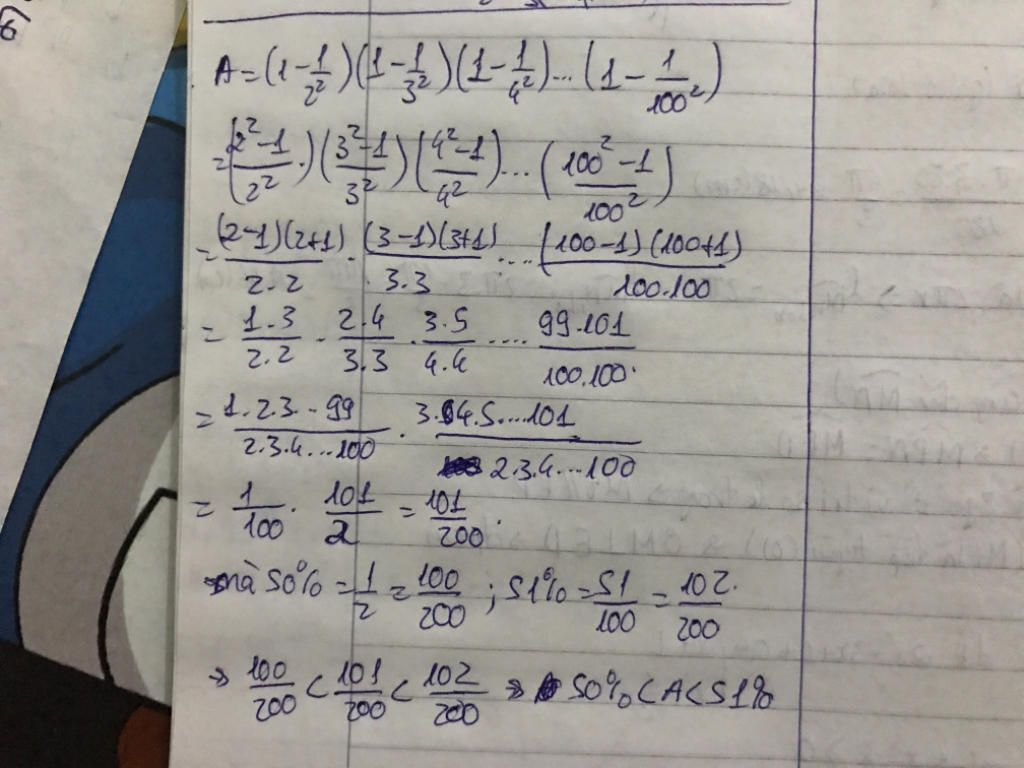 6
A = (1 - 1/2²)(1 - 1/3²)(1 - 1/4²)...(1 - 1/100²)
= (2²-1/2².)(3²-1/3²)(4²-1/4²)...(100²-1/100²)
= (2-1)(2+1)/2.2 . (3-1)(3+1)/3.3 .... (100-1)(100+1)/100.100
= 1.3/2.2 . 2.4/3.3 . 3.5/4.4 .... 99.101/100.100.
= 1.2.3...99/2.3.4...100 . 3.4.5...101/2.3.4...100
= 1/100 . 101/2 = 101/200.
mà 50% = 1/2 = 100/200 ; 51% = 51/100 = 102/200.
⇒ 100/200 < 101/200 < 102/200 ⇒ 50% < A < 51%